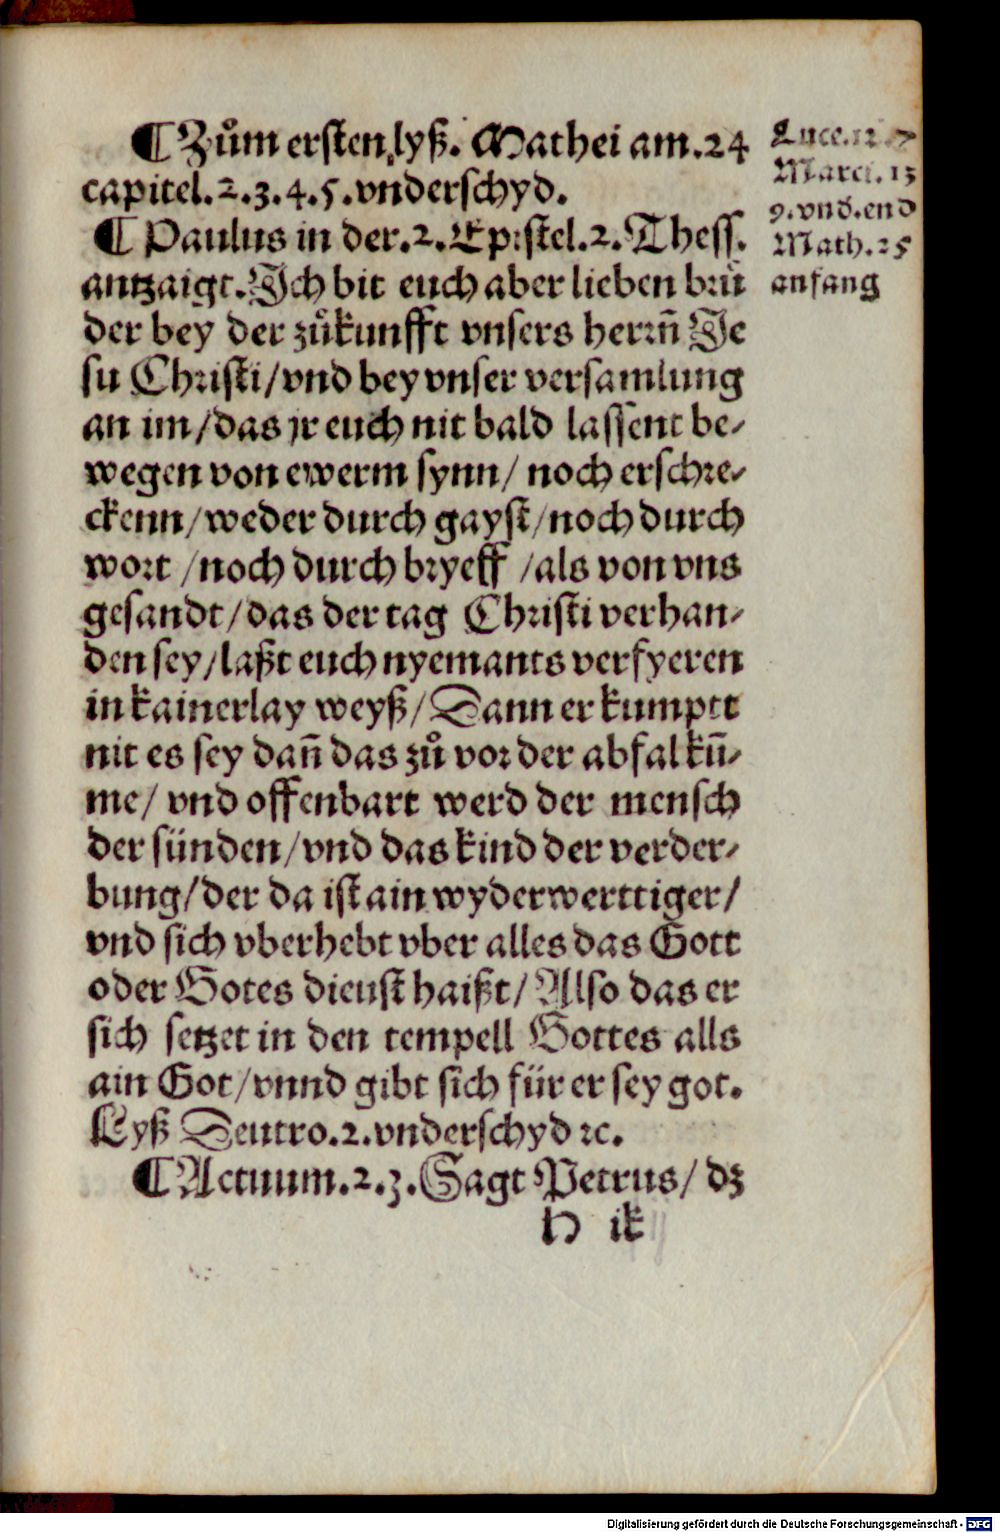 ¶ Zům ersten lyß. Mathei am.24
capitel.2.3.4.5.vnderschyd.
¶ Paulus in der.2.Epistel.2.Thess.
antzaigt.Ich bit euch aber lieben brů
der bey der zůkunfft vnsers herrn̄ Je
su Christi/vnd bey vnser versamlung
an im/das jr euch nit bald lassent be-
wegen von ewerm synn/ noch erschre-
ckenn/weder durch gayst/noch durch
wort /noch durch bryeff /als von vns
gesandt/das der tag Christi verhan-
den sey/laßt euch nyemants verfyeren
in kainerlay weyß/Dann er kumptt
nit es sey dan̄ das zů vor der abfal kū-
me/ vnd offenbart werd der mensch
der sünden/vnd das kind der verder-
bung/der da ist ain wyderwerttiger/
vnd sich vberhebt vber alles das Gott
oder Gotes dienst haißt/Also das er
sich setzet in den tempell Gottes alls
ain Got/vnnd gibt sich für er sey got.
Lyß Deutro.2.vnderschyd ꝛc.
¶ Actuum.2.3.Sagt Petrus/ dz
H ij
Luce.12.
Marci.13
9.vnd.end
Math.25
anfang
Digitalisierung gefördert durch die Deutsche Forschungsgemeinschaft - DFG